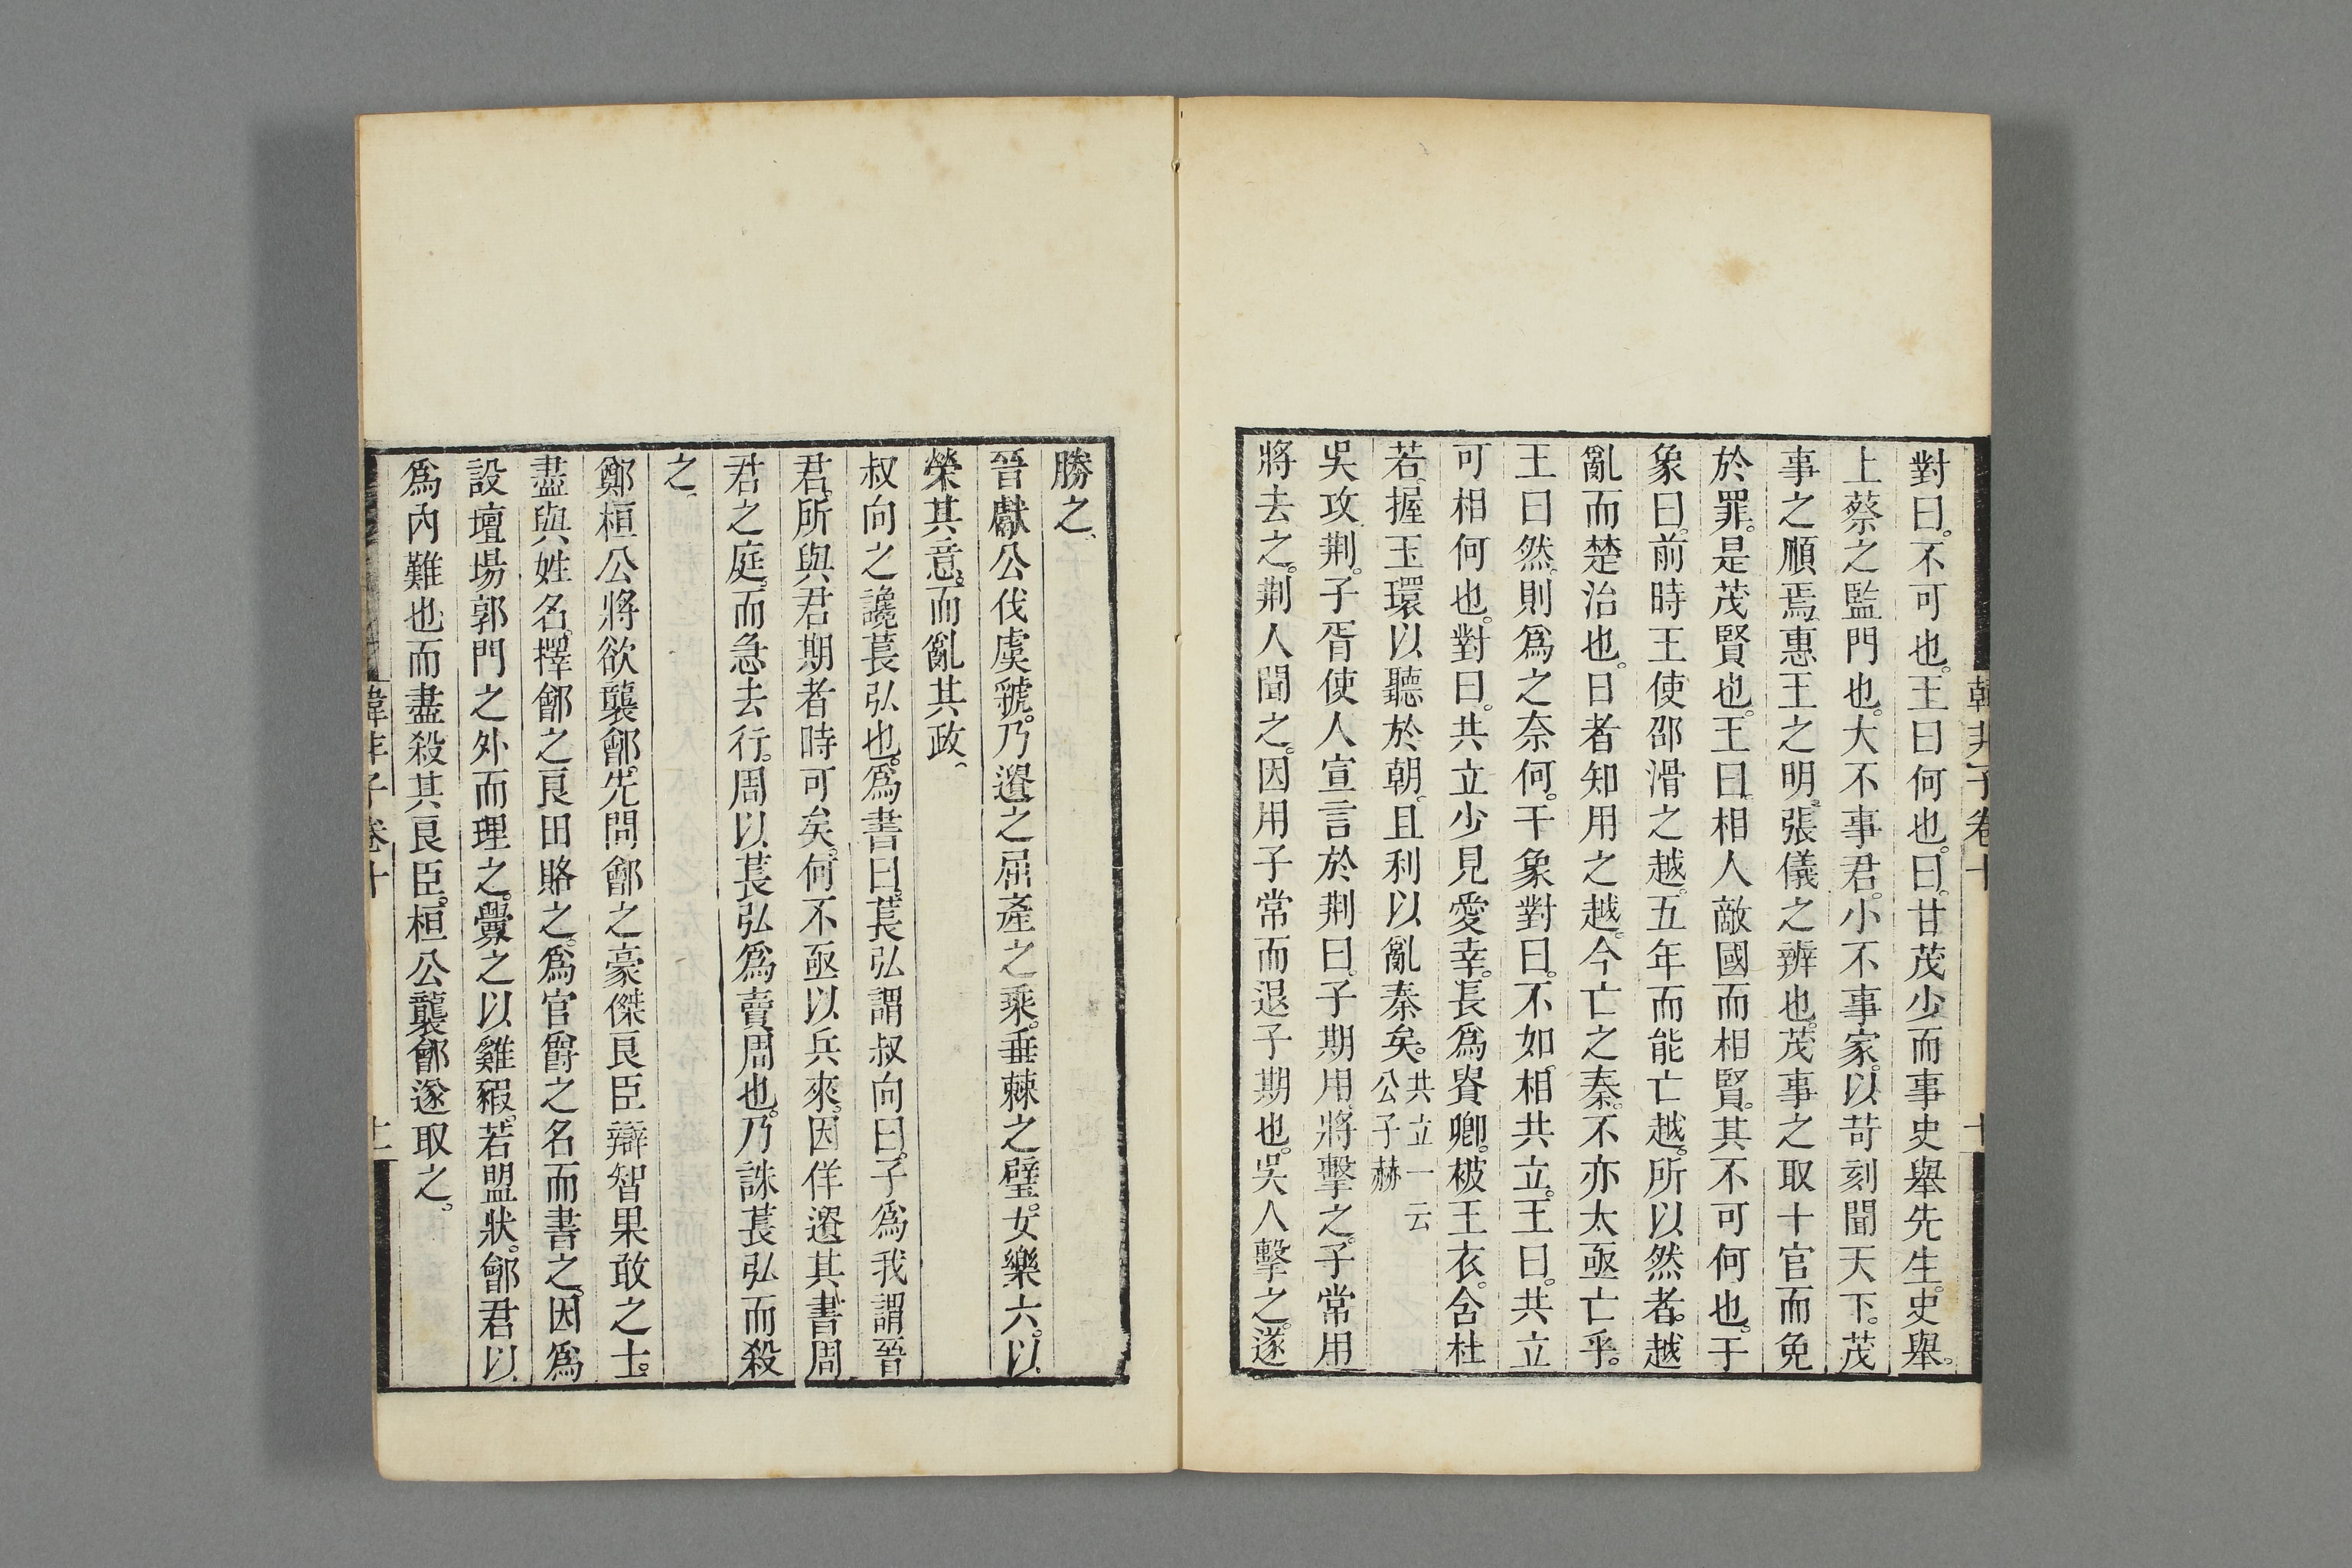 韓非子卷十
十
對曰。不可也。王曰何也。曰。甘茂少而事史舉先生。史舉。
上蔡之監門也。大不事君。小不事家。以苛刻聞天下。茂
事之順焉。惠王之明。張儀之辨也。茂事之取十官而免
於罪。是茂賢也。王曰。相人敵國而相賢。其不可何也。于
象曰。前時王使邵滑之越。五年而能亡越。所以然者。越
亂而楚治也。日者知用之越。今亡之秦。不亦太亟亡乎。
王曰然。則爲之奈何。干象對曰。不如相共立。王曰。共立
可相何也。對曰。共立少見愛幸。長爲貴卿。被王衣。含杜
若。握玉環以聽於朝。且利以亂秦矣。共立一云
公子赫
吳攻荆。子胥使人宣言於荆曰。子期用。將擊之。子常用
將去之。荆人聞之。因用子常而退子期也。吳人擊之。遂
勝之、
晉獻公伐虞虢。乃遺之屈產之乘。垂棘之璧。女樂六。以
榮其意。而亂其政、
叔向之讒萇弘也。爲書曰。萇弘謂叔向曰。子爲我謂晉
君。所與君期者時可矣。何不亟以兵來。因佯遺其書周
君之庭。而急去行。周以萇弘爲賣周也。乃誅萇弘而殺
之、
鄭桓公將欲襲鄶。先問鄶之豪傑良臣辯智果敢之士。
盡與姓名。擇鄶之良田賂之。爲官爵之名而書之。因爲
設壇場郭門之外而理之。釁之以雞豭。若盟狀。鄶君以
爲內難也。而盡殺其良臣。桓公襲鄶遂取之。
韓非子卷十
十一